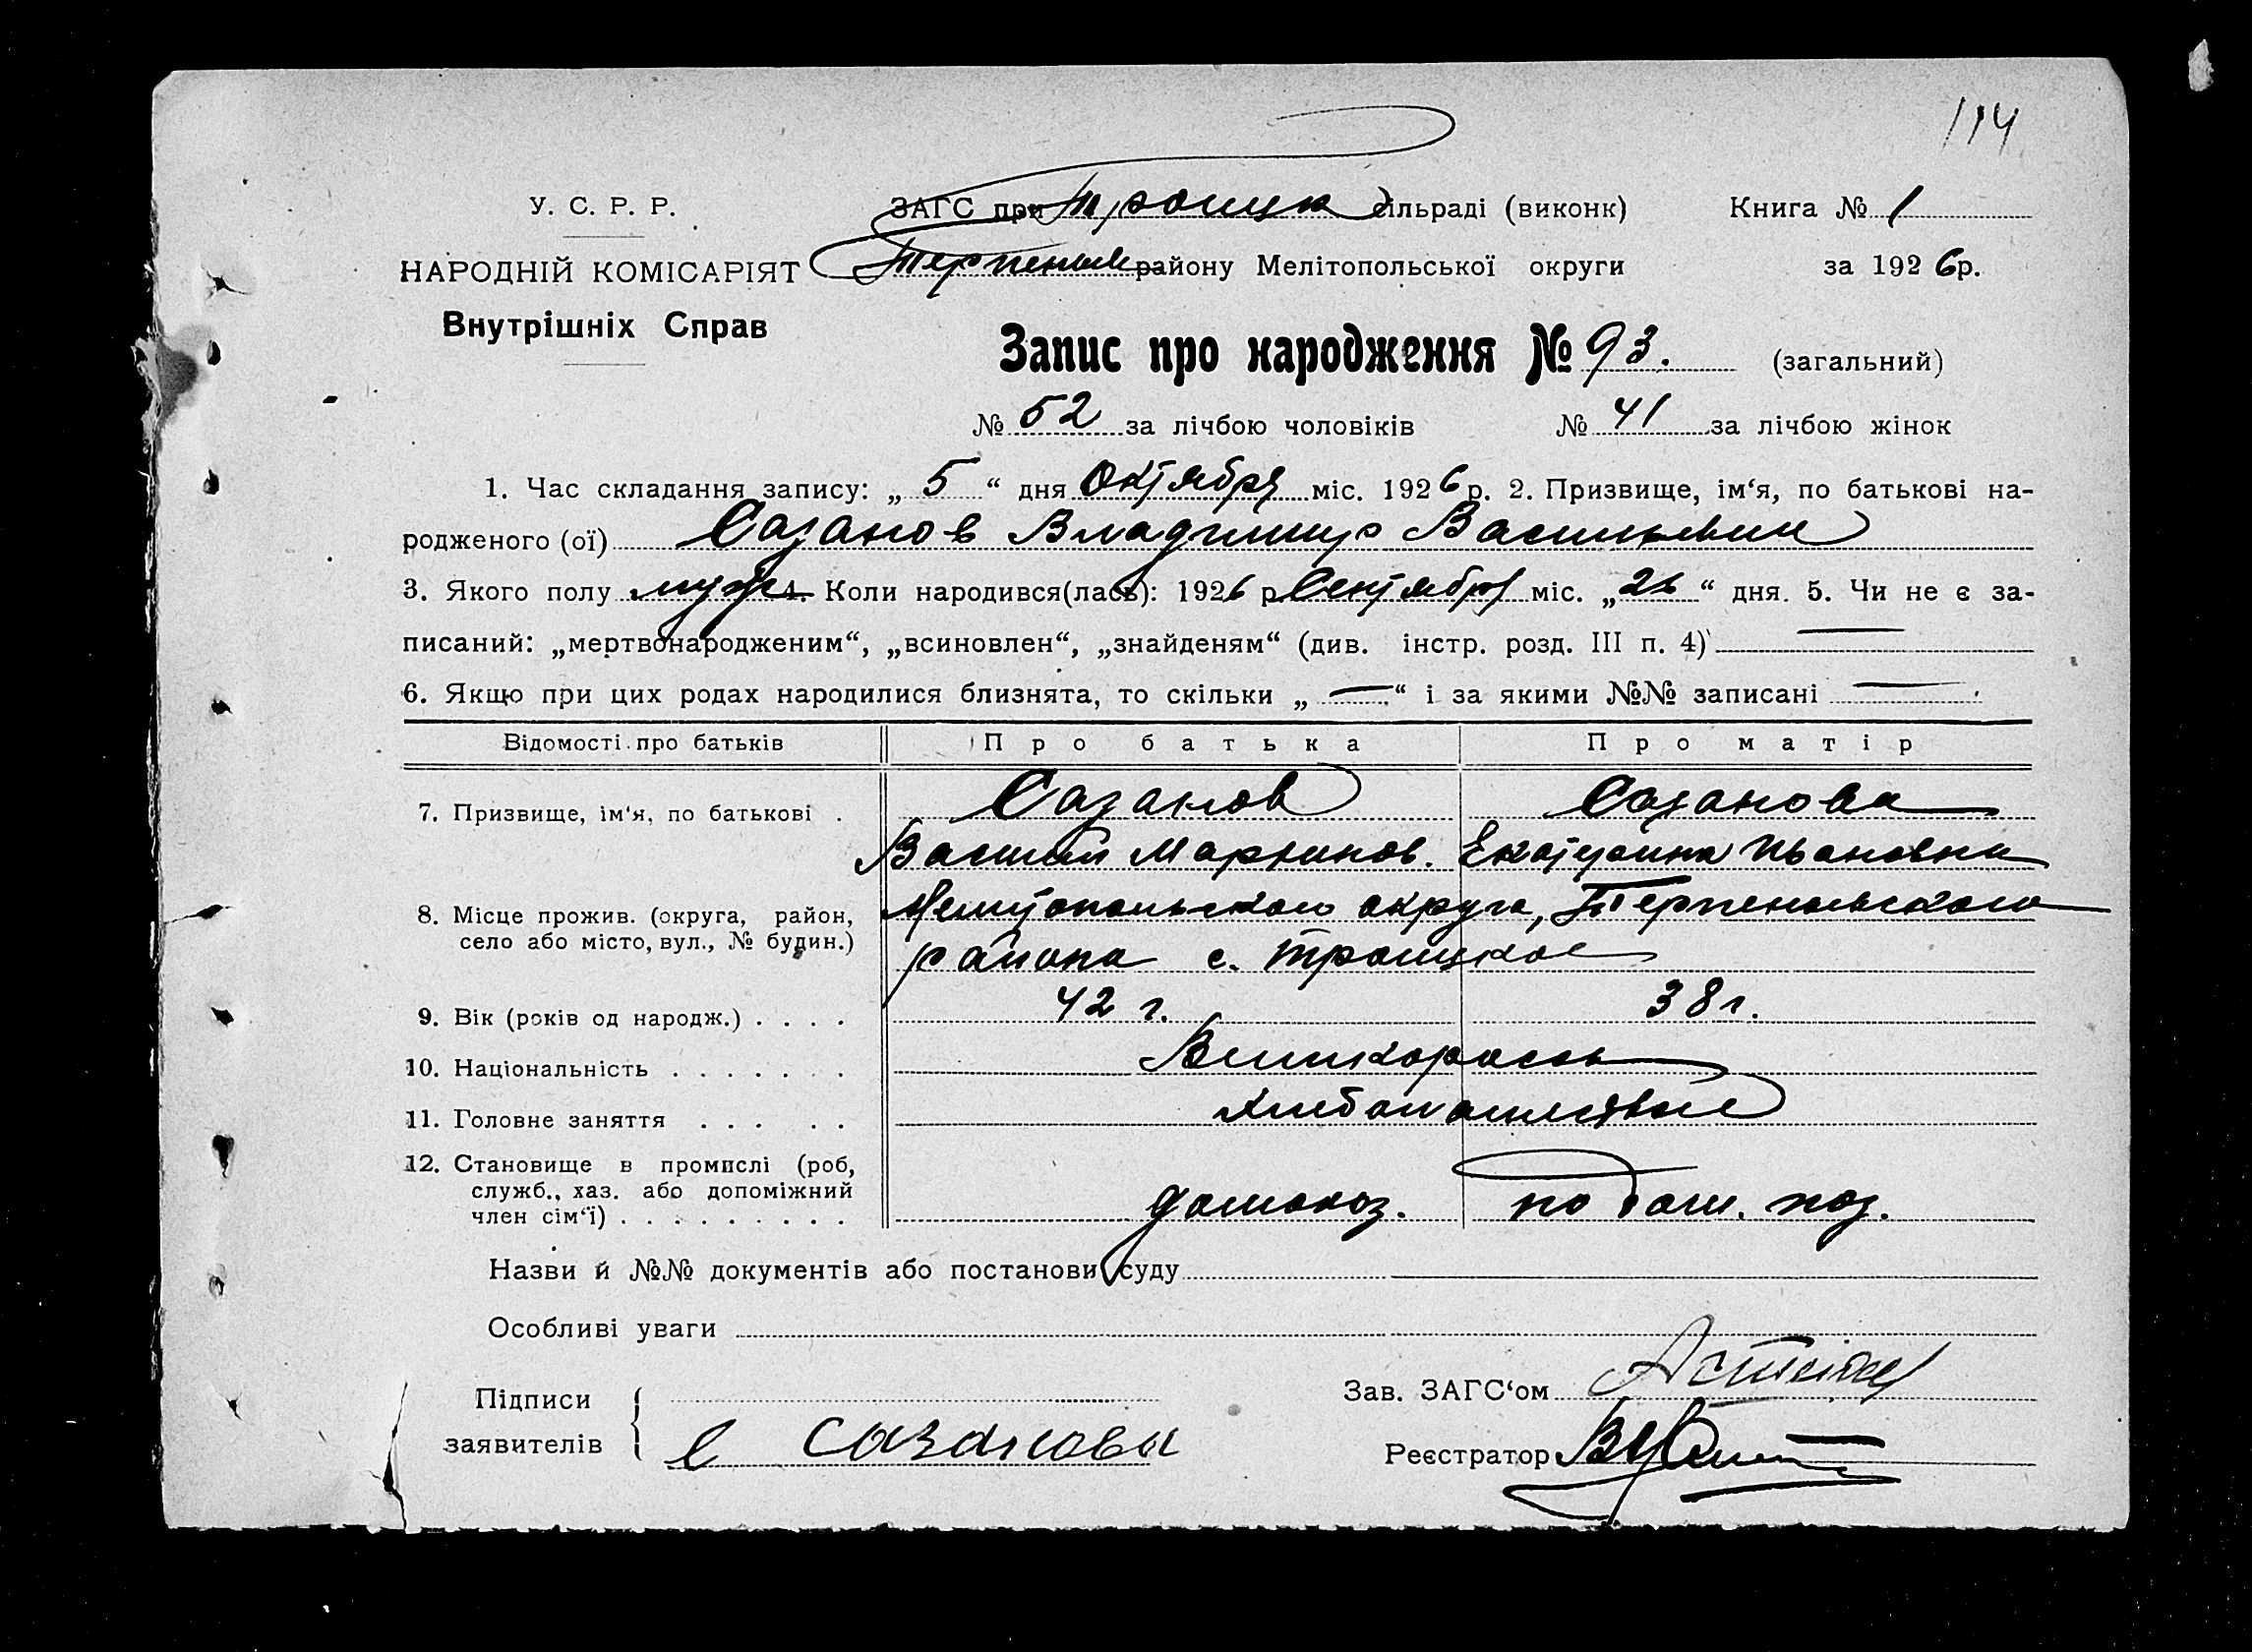 114
У. С. Р. Р. ЗАГС при Троицк сільраді (виконк) Книга № 1
НАРОДНІЙ КОМІСАРІЯТ Терпеньев району Мелітопольської округи за 1926 р.
Внутрішніх Справ
Запис про народження № 93. (загальний)
№ 52 за лічбою чоловіків № 41 за лічбою жінок
1. Час складання запису: „ 5 “ дня Октября міс. 1926 р. 2. Призвище, ім‘я, по батькові на-
родженого (ої) Сазанов Владимир Васильевич
3. Якого полу муж 4. Коли народився(лась): 1926 р Сентября міс. „ “ дня. 5. Чи не є за-
писаний: „мертвонародженим“, „всиновлен“, „знайденям“ (див. інстр. розд. III п. 4) —
6. Якщо при цих родах народилися близнята, то скільки „ — “ і за якими №№ записані —
Відомості про батьків Про батька Про матір
7. Призвище, ім‘я, по батькові . Сазанов Сазанова
Василий Мартинов. Екатерина Ивановна
8. Місце прожив. (округа, район, Мелитопольского округа, Терпеньевского
село або місто, вул., № будин.) района с. Троицкое
9. Вік (років од народж.) . . . . 42 г. 38 г.
10. Національність . . . . . . . Великороссы
11. Головне заняття . . . . . Хлебопашество
12. Становище в промислі (роб,
служб., хаз. або допоміжний
член сім‘ї) . . . . . . . . . домохоз. по дом. хоз.
Назви й №№ документів або постанови суду
Особливі уваги
Підписи Зав. ЗАГС‘ом
заявителів Сазанова Реєстратор